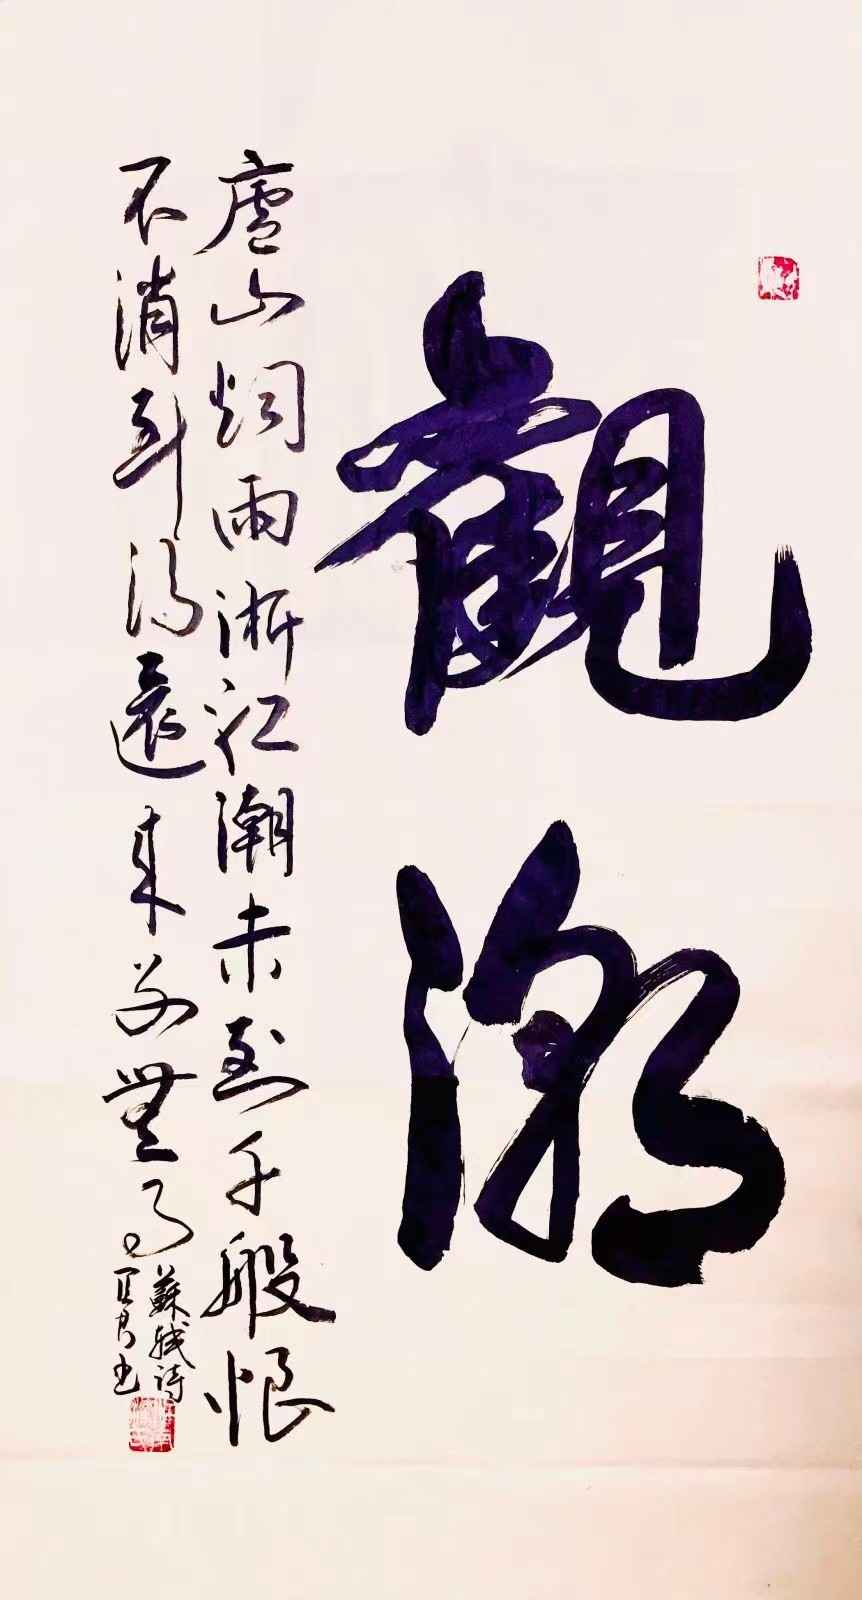 觀潮
廬山烟雨浙江潮未至千般恨
不消到得還來別無事
蘇軾詩